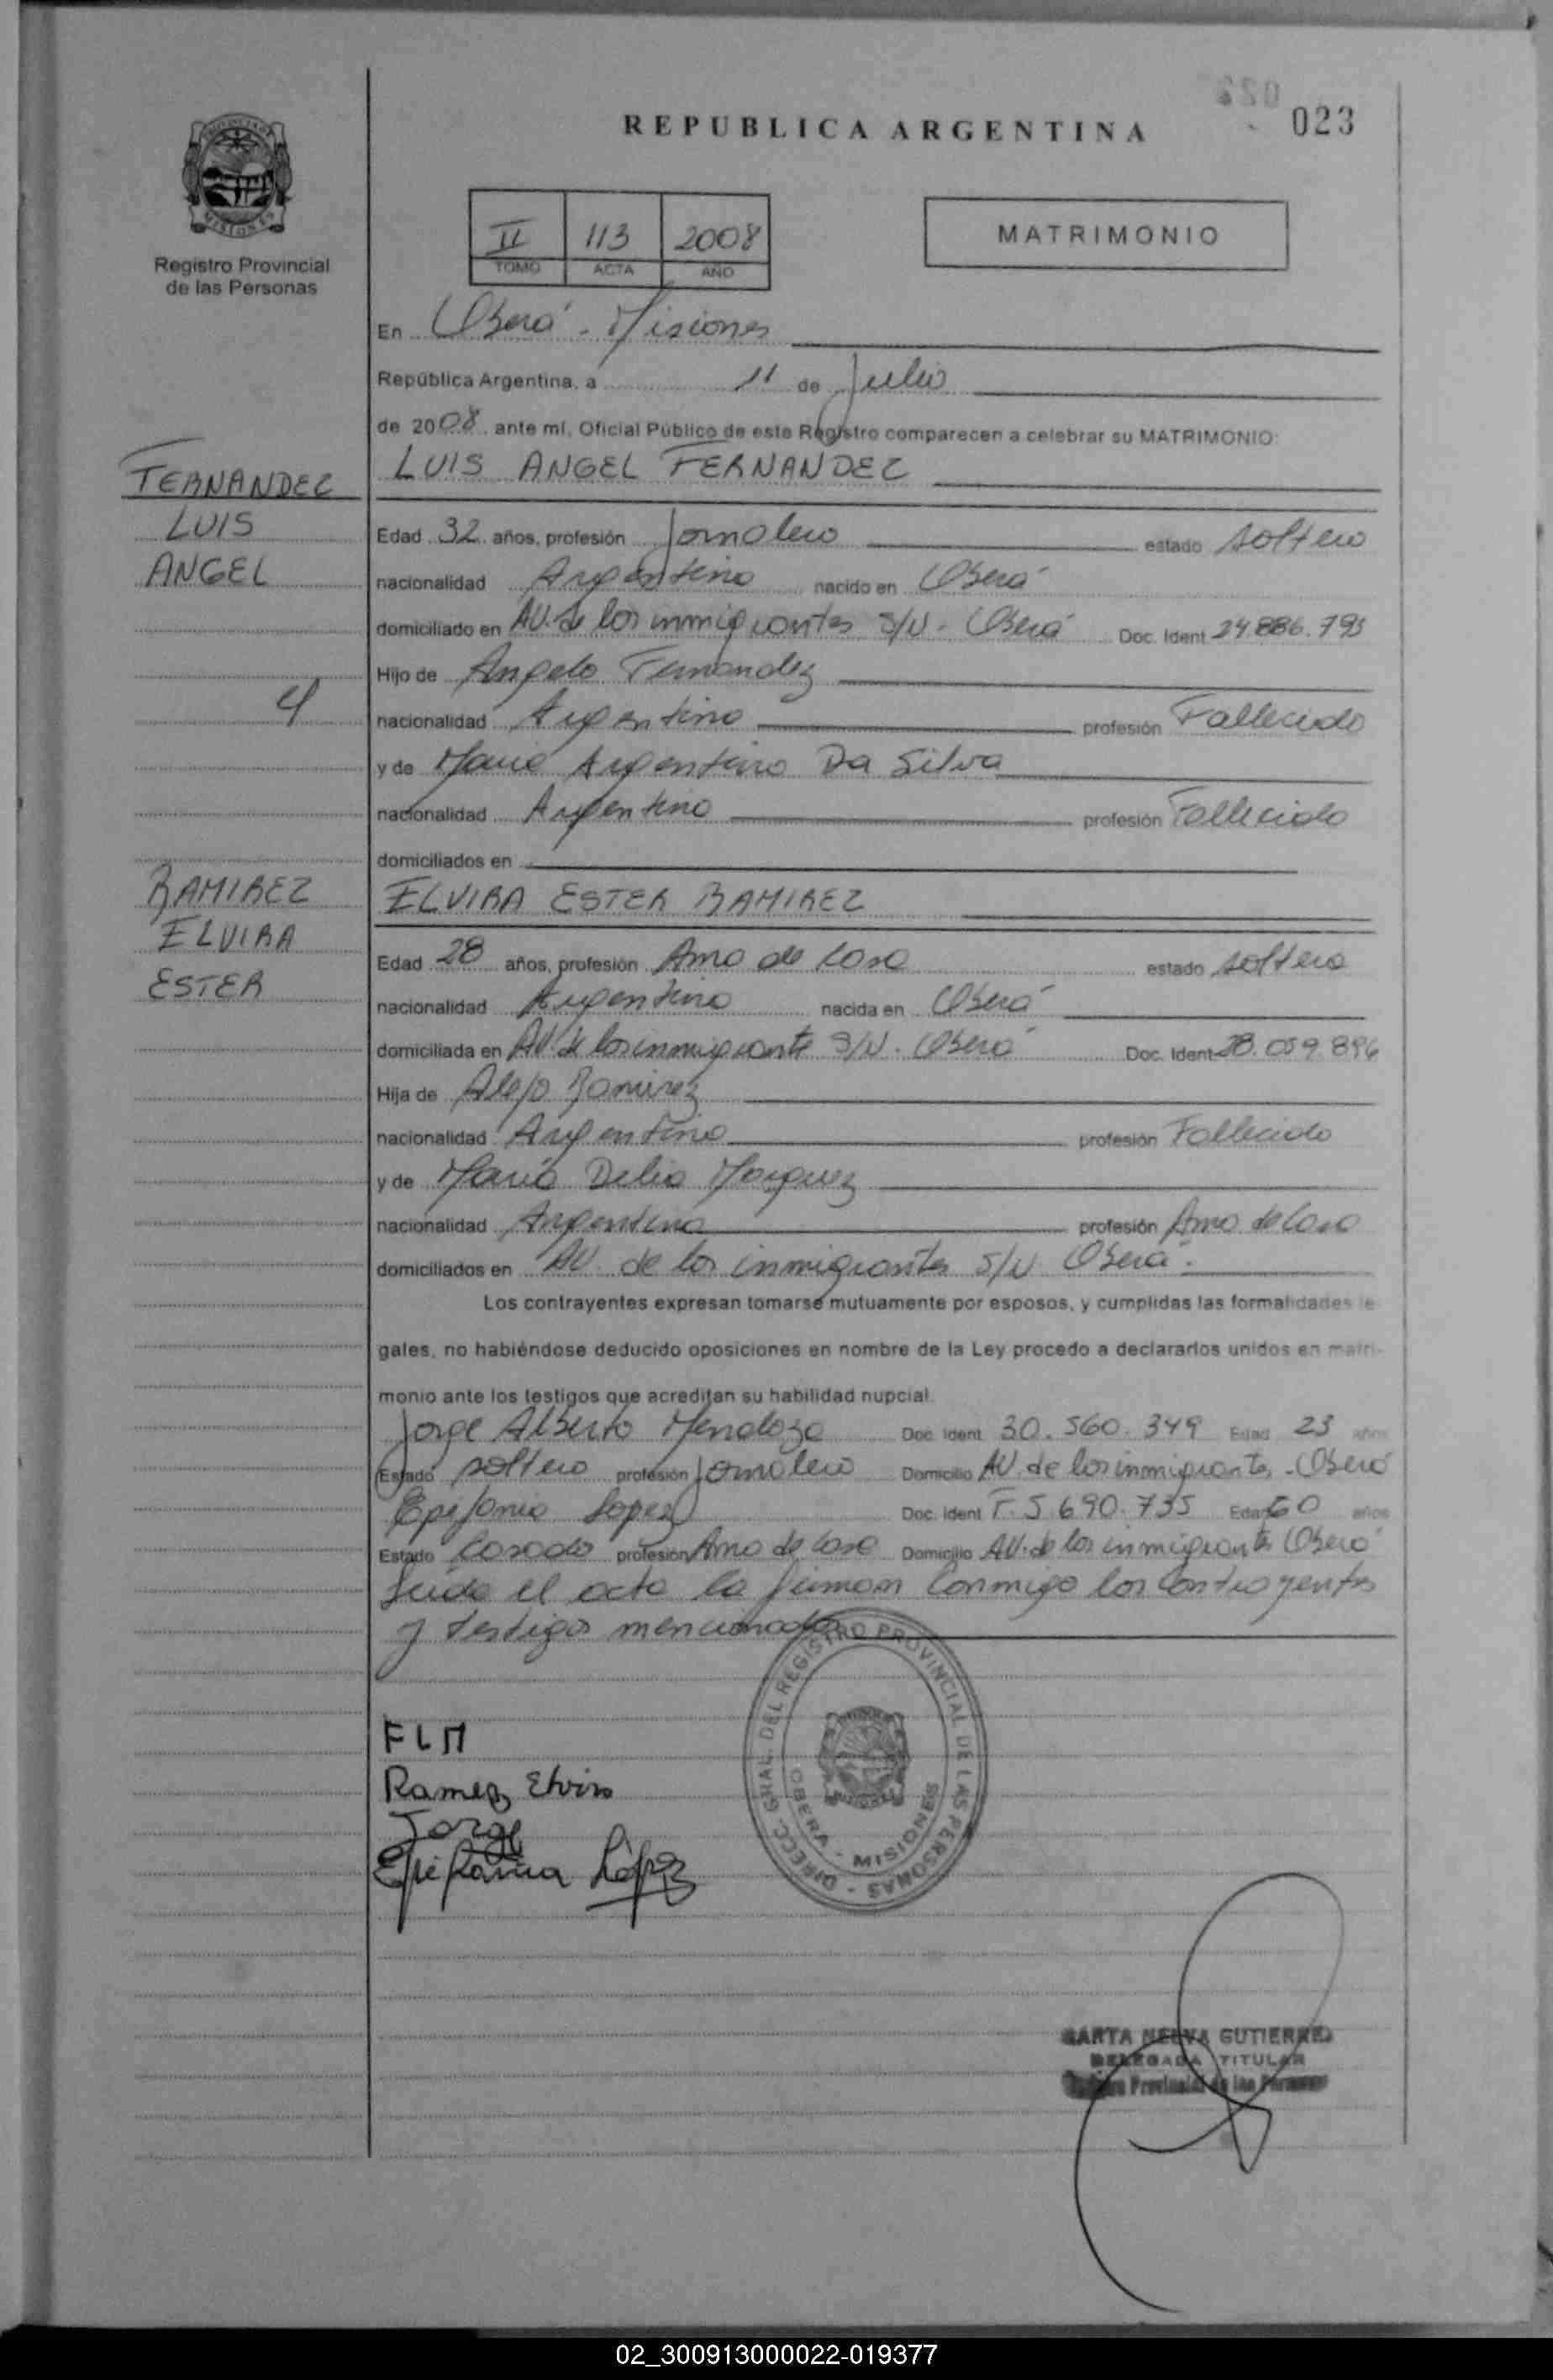 023
REPUBLICA ARGENTINA
II 113 2008
TOMO ACTA AÑO
MATRIMONIO
Registro Provincial
de las Personas
En Oberá - Misiones
República Argentina, a 11 de Julio
de 2008 ante mí, Oficial Público de este Registro comparecen a celebrar su MATRIMONIO:
FERNANDEZ
LUIS
ANGEL
LUIS ANGEL FERNANDEZ
Edad 32 años, profesión Jornalero estado soltero
nacionalidad Argentina nacido en Oberá
domiciliado en AV. de los inmigrantes S/N - Oberá Doc. Ident. 24.886.793
Hijo de Angelo Fernandez
nacionalidad Argentino profesión Fallecido
y de Maria Argentina Da Silva
nacionalidad Argentina profesión Fallecida
domiciliados en
RAMIREZ
ELVIRA
ESTER
ELVIRA ESTER RAMIREZ
Edad 28 años, profesión Ama de casa estado soltera
nacionalidad Argentina nacida en Oberá
domiciliada en AV. de los inmigrante S/N. Oberá Doc. Ident. 28.059.896
Hija de Alejo Ramirez
nacionalidad Argentino profesión Fallecido
y de María Delia Marquez
nacionalidad Argentina profesión Ama de Casa
domiciliados en AV. de los inmigrantes S/N Oberá.
Los contrayentes expresan tomarse mutuamente por esposos, y cumplidas las formalidades le-
gales, no habiéndose deducido oposiciones en nombre de la Ley procedo a declararlos unidos en matri-
monio ante los testigos que acreditan su habilidad nupcial.
Jorge Alberto Mendoza Doc. Ident. 30.560.349 Edad 23 años
Estado soltero profesión Jornalero Domicilio AV. de los inmigrantes - Oberá
Epifania Lopez Doc. Ident. F.5.690.735 Edad 60 años
Estado Casada profesión Ama de casa Domicilio AV. de los inmigrantes Oberá
Leída el acta la firman conmigo los contrayentes
y testigos mencionados
DIRECC. GRAL. DEL REGISTRO PROVINCIAL DE LAS PERSONAS -
OBERA - MISIONES
FLA
Ramez Elvira
Jorge
Epifania López
GUTIERREZ
DELEGADA TITULAR
Provincial de las Personas
02_300913000022-019377